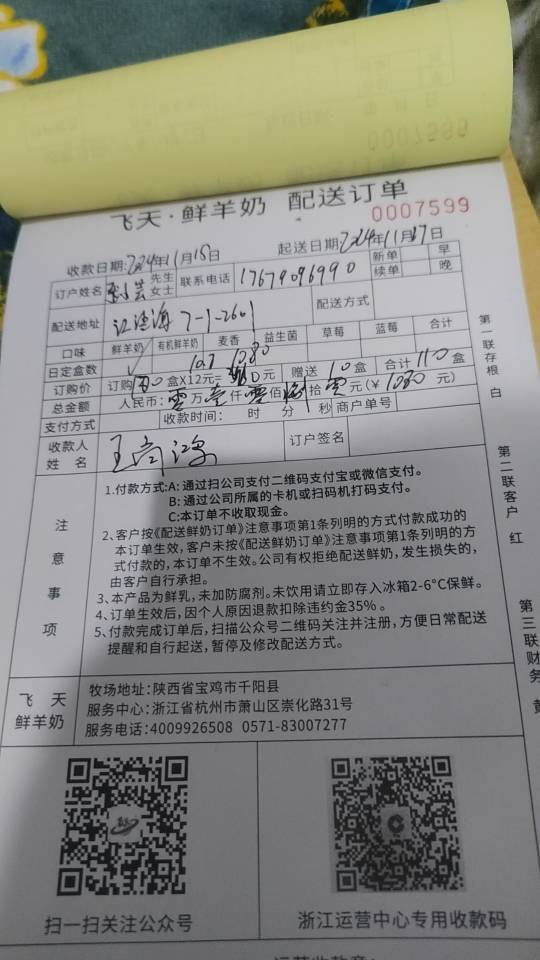 飞天·鲜羊奶 配送订单
0007599
收款日期:2024年11月15日 起送日期:2024年11月17日
订户姓名 先生 女士 联系电话 17679096990 新单 续单 早 晚
配送地址 7-1-2601 配送方式
口味 鲜羊奶 有机鲜羊奶 麦香 益生菌 草莓 蓝莓 合计
日定盒数
订购价 订购 盒X12元= 元 赠送 10 盒 合计 110 盒
总金额 人民币: 零 万 壹 仟 零 佰 捌 拾 零 元(¥ 1080 元)
支付方式 收款时间: 时 分 秒 商户单号
收款人姓名 订户签名
注意事项
1.付款方式:A: 通过扫公司支付二维码支付宝或微信支付。
B: 通过公司所属的卡机或扫码机打码支付。
C:本订单不收取现金。
2、客户按《配送鲜奶订单》注意事项第1条列明的方式付款成功的
本订单生效,客户未按《配送鲜奶订单》注意事项第1条列明的方
式付款的,本订单不生效。公司有权拒绝配送鲜奶,发生损失的,
由客户自行承担。
3、本产品为鲜乳,未加防腐剂。未饮用请立即存入冰箱2-6°C保鲜。
4、订单生效后,因个人原因退款扣除违约金35%。
5、付款完成订单后,扫描公众号二维码关注并注册,方便日常配送
提醒和自行起送,暂停及修改配送方式。
飞天
鲜羊奶
牧场地址:陕西省宝鸡市千阳县
服务中心:浙江省杭州市萧山区崇化路31号
服务电话:4009926508 0571-83007277
扫一扫关注公众号
浙江运营中心专用收款码
第一联存根 白
第二联客户 红
第三联财务 黄